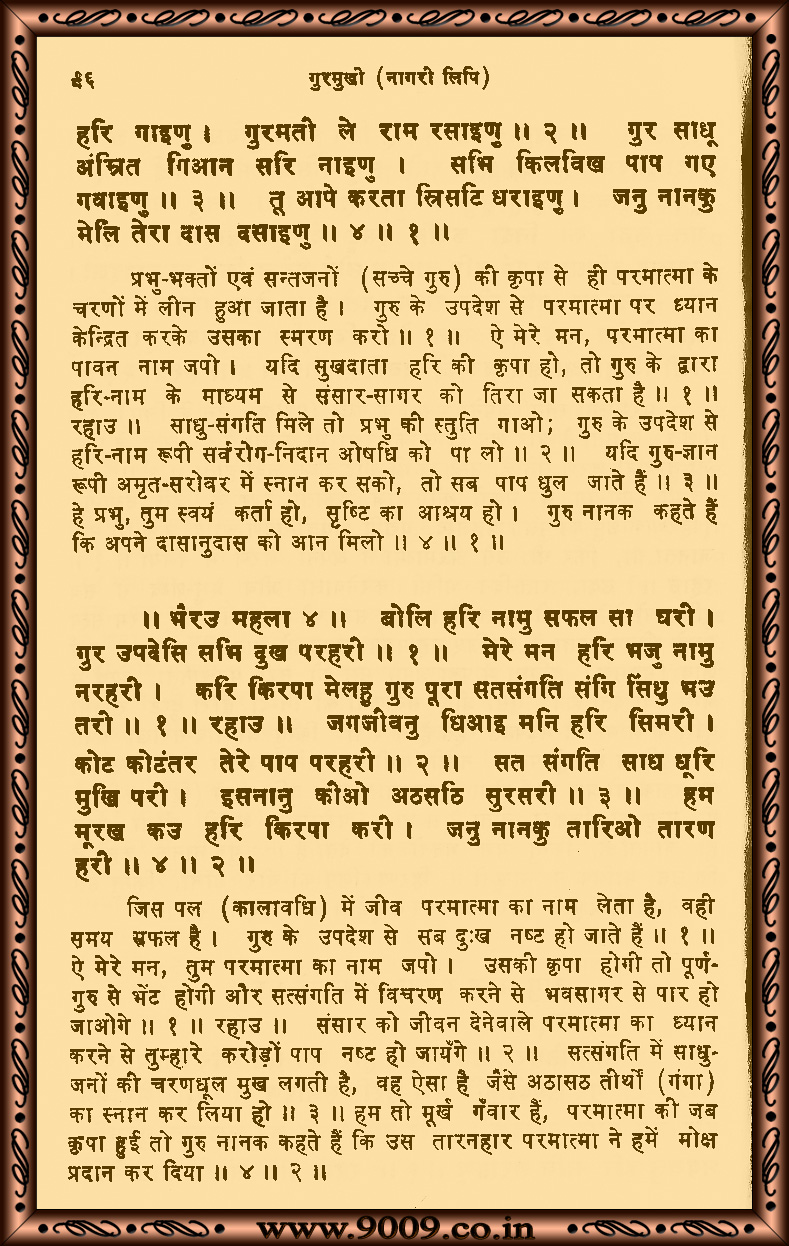 ३६ गुरमुखी (नागरी लिपि)
हरि गाइणु । गुरमती ले राम रसाइणु ॥ २ ॥ गुर साधू
अंम्रित गिआन सरि नाइणु । सभि किलविख पाप गए
गवाइणु ॥ ३ ॥ तू आपे करता स्रिसटि धराइणु । जनु नानकु
मेलि तेरा दास दसाइणु ॥ ४ ॥ १ ॥
प्रभु-भक्तों एवं सन्तजनों (सच्चे गुरु) की कृपा से ही परमात्मा के
चरणों में लीन हुआ जाता है । गुरु के उपदेश से परमात्मा पर ध्यान
केन्द्रित करके उसका स्मरण करो ॥ १ ॥ ऐ मेरे मन, परमात्मा का
पावन नाम जपो । यदि सुखदाता हरि की कृपा हो, तो गुरु के द्वारा
हरि-नाम के माध्यम से संसार-सागर को तिरा जा सकता है ॥ १ ॥
रहाउ ॥ साधु-संगति मिले तो प्रभु की स्तुति गाओ; गुरु के उपदेश से
हरि-नाम रूपी सर्वरोग-निदान ओषधि को पा लो ॥ २ ॥ यदि गुरु-ज्ञान
रूपी अमृत-सरोवर में स्नान कर सको, तो सब पाप धुल जाते हैं ॥ ३ ॥
हे प्रभु, तुम स्वयं कर्ता हो, सृष्टि का आश्रय हो । गुरु नानक कहते हैं
कि अपने दासानुदास को आन मिलो ॥ ४ ॥ १ ॥
॥ भैरउ महला ४ ॥ बोलि हरि नामु सफल सा घरी ।
गुर उपदेसि सभि दुख परहरी ॥ १ ॥ मेरे मन हरि भजु नामु
नरहरी । करि किरपा मेलहु गुरु पूरा सतसंगति संगि सिंधु भउ
तरी ॥ १ ॥ रहाउ ॥ जगजीवनु धिआइ मनि हरि सिमरी ।
कोट कोटंतर तेरे पाप परहरी ॥ २ ॥ सत संगति साध धूरि
मुखि परी । इसनानु कीओ अठसठि सुरसरी ॥ ३ ॥ हम
मूरख कउ हरि किरपा करी । जनु नानकु तारिओ तारण
हरी ॥ ४ ॥ २ ॥
जिस पल (कालावधि) में जीव परमात्मा का नाम लेता है, वही
समय सफल है । गुरु के उपदेश से सब दुःख नष्ट हो जाते हैं ॥ १ ॥
ऐ मेरे मन, तुम परमात्मा का नाम जपो । उसकी कृपा होगी तो पूर्ण-
गुरु से भेंट होगी और सत्संगति में विचरण करने से भवसागर से पार हो
जाओगे ॥ १ ॥ रहाउ ॥ संसार को जीवन देनेवाले परमात्मा का ध्यान
करने से तुम्हारे करोड़ों पाप नष्ट हो जायँगे ॥ २ ॥ सत्संगति में साधु-
जनों की चरणधूल मुख लगती है, वह ऐसा है जैसे अठासठ तीर्थों (गंगा)
का स्नान कर लिया हो ॥ ३ ॥ हम तो मूर्ख गँवार हैं, परमात्मा की जब
कृपा हुई तो गुरु नानक कहते हैं कि उस तारनहार परमात्मा ने हमें मोक्ष
प्रदान कर दिया ॥ ४ ॥ २ ॥
www.9009.co.in